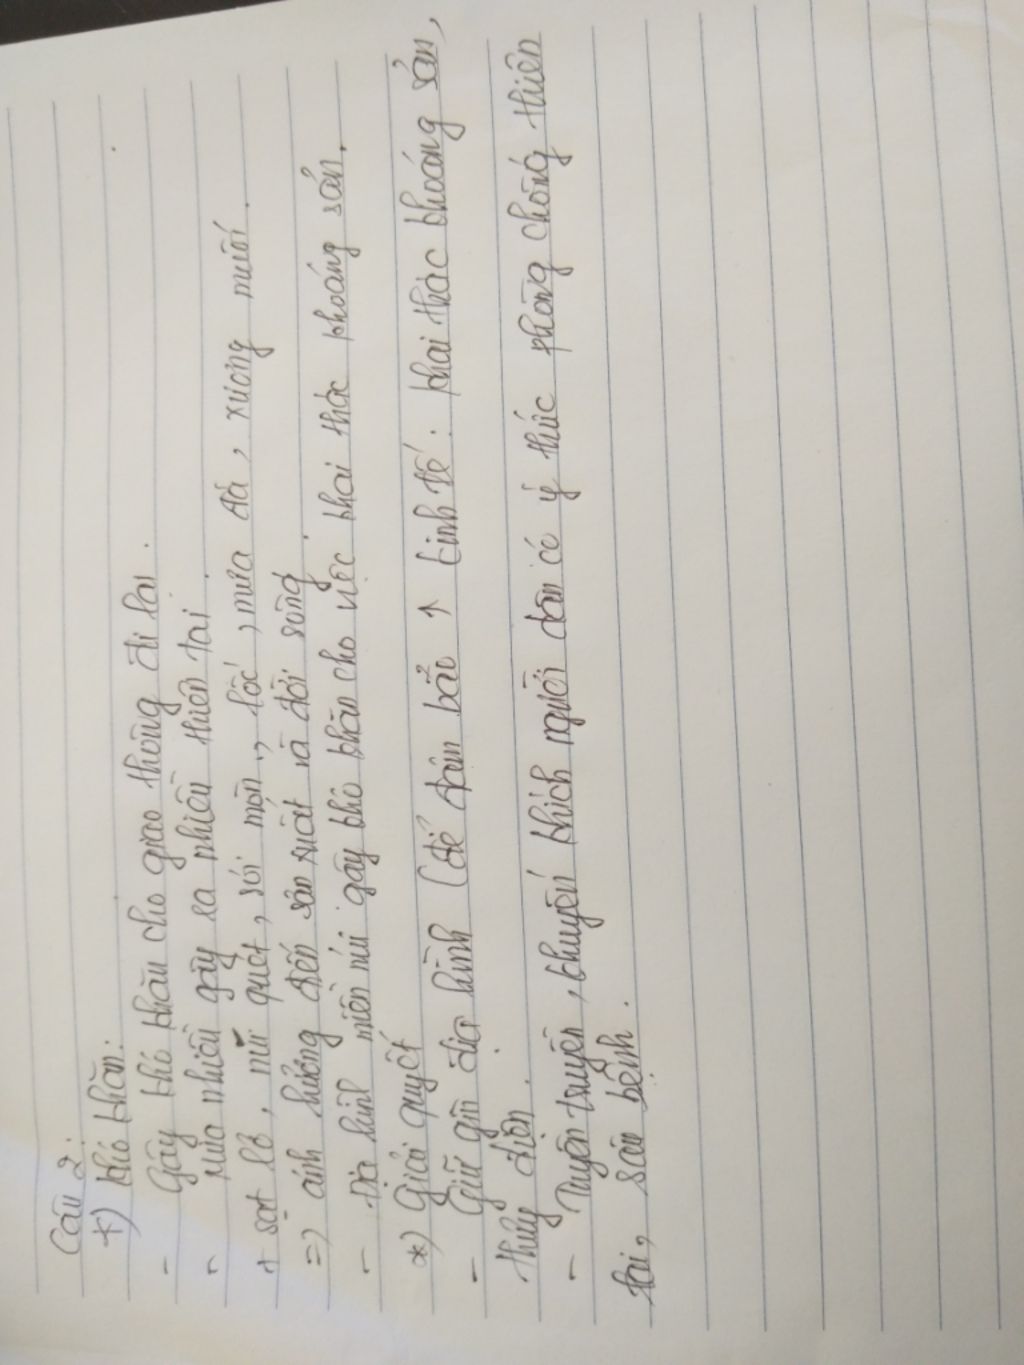 Câu 2:
*) Khó khăn:
- Gây khó khăn cho giao thông đi lại.
- Mưa nhiều gây ra nhiều thiên tai.
+ sạt lở, mũ quét, sói mòn, lốc, mưa đá, xương muối.
=) ảnh hưởng đến sản xuất và đời sống.
- Địa hình miền núi gây khó khăn cho việc khai thác khoáng sản.
*) Giải quyết
- Giữ gìn địa hình (để đảm bảo ↑ kinh tế: khai thác khoáng sản,
thủy điện.
- Tuyên truyền, khuyến khích người dân có ý thức phòng chống thiên
tai, sâu bệnh.